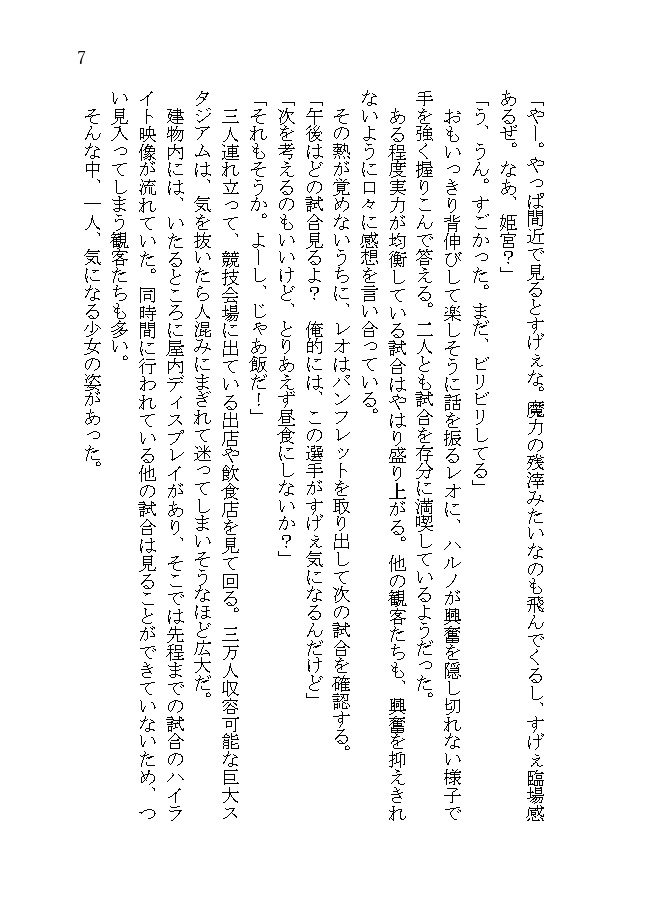 7
「やー。やっぱ間近で見るとすげぇな。魔力の残滓みたいなのも飛んでくるし、すげぇ臨場感
あるぜ。なあ、姫宮？」
「う、うん。すごかった。まだ、ビリビリしてる」
　おもいっきり背伸びして楽しそうに話を振るレオに、ハルノが興奮を隠し切れない様子で
手を強く握りこんで答える。二人とも試合を存分に満喫しているようだった。
　ある程度実力が均衡している試合はやはり盛り上がる。他の観客たちも、興奮を抑えきれ
ないように口々に感想を言い合っている。
　その熱が覚めないうちに、レオはパンフレットを取り出して次の試合を確認する。
「午後はどの試合見るよ？　俺的には、この選手がすげぇ気になるんだけど」
「次を考えるのもいいけど、とりあえず昼食にしないか？」
「それもそうか。よーし、じゃあ飯だ！」
　三人連れ立って、競技会場に出ている出店や飲食店を見て回る。三万人収容可能な巨大ス
タジアムは、気を抜いたら人混みにまぎれて迷ってしまいそうなほど広大だ。
　建物内には、いたるところに屋内ディスプレイがあり、そこでは先程までの試合のハイラ
イト映像が流れていた。同時間に行われている他の試合は見ることができていないため、つ
い見入ってしまう観客たちも多い。
　そんな中、一人、気になる少女の姿があった。